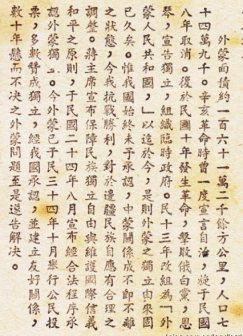 外蒙面積約一百六十一萬二千餘方公里,人口七
十四萬九千。辛亥革命時曾一度宣告自治,旋於民國
八年取消。後於民國十年發生革命,擊敗俄白黨,恩
琴人宣告獨立,組織臨時政府。民十三年改組為「
蒙人民共和國,」以迄於今,是則外蒙之獨立由來固
已久矣。惟我國始終未予承認,中蒙關係成不即不離
之狀態,今我抗戰勝利,對於邊疆民族自應有合理之
調整。蔣主席宣布保障民族獨立自由與維護國際信義
和平之原則,于民國三十四年八月宣布經合法程序承
認外蒙獨立。今外蒙已于民三十四年十月舉行公民投
票,多數贊成獨立,經我國承認,並建立友好關係,
數十年懸而不决之外蒙問題至是遂告解决。